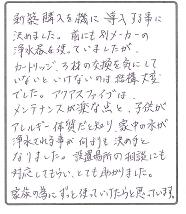 新築購入を機に導入する事に
決めました。前にも別メーカーの
浄水器を使っていましたが、
カートリッジ、ろ材の交換を気にして
いないといけないのは結構大変
でした。アクアスファイブは、
メンテナンスが楽な点と、子供が
アレルギー体質だと知り、家中の水が
浄水できる事が何よりも決め手と
なりました。設置場所の相談にも
対応してもらい、とても助かりました。
家族の為にずっと使っていけたらと思っています。